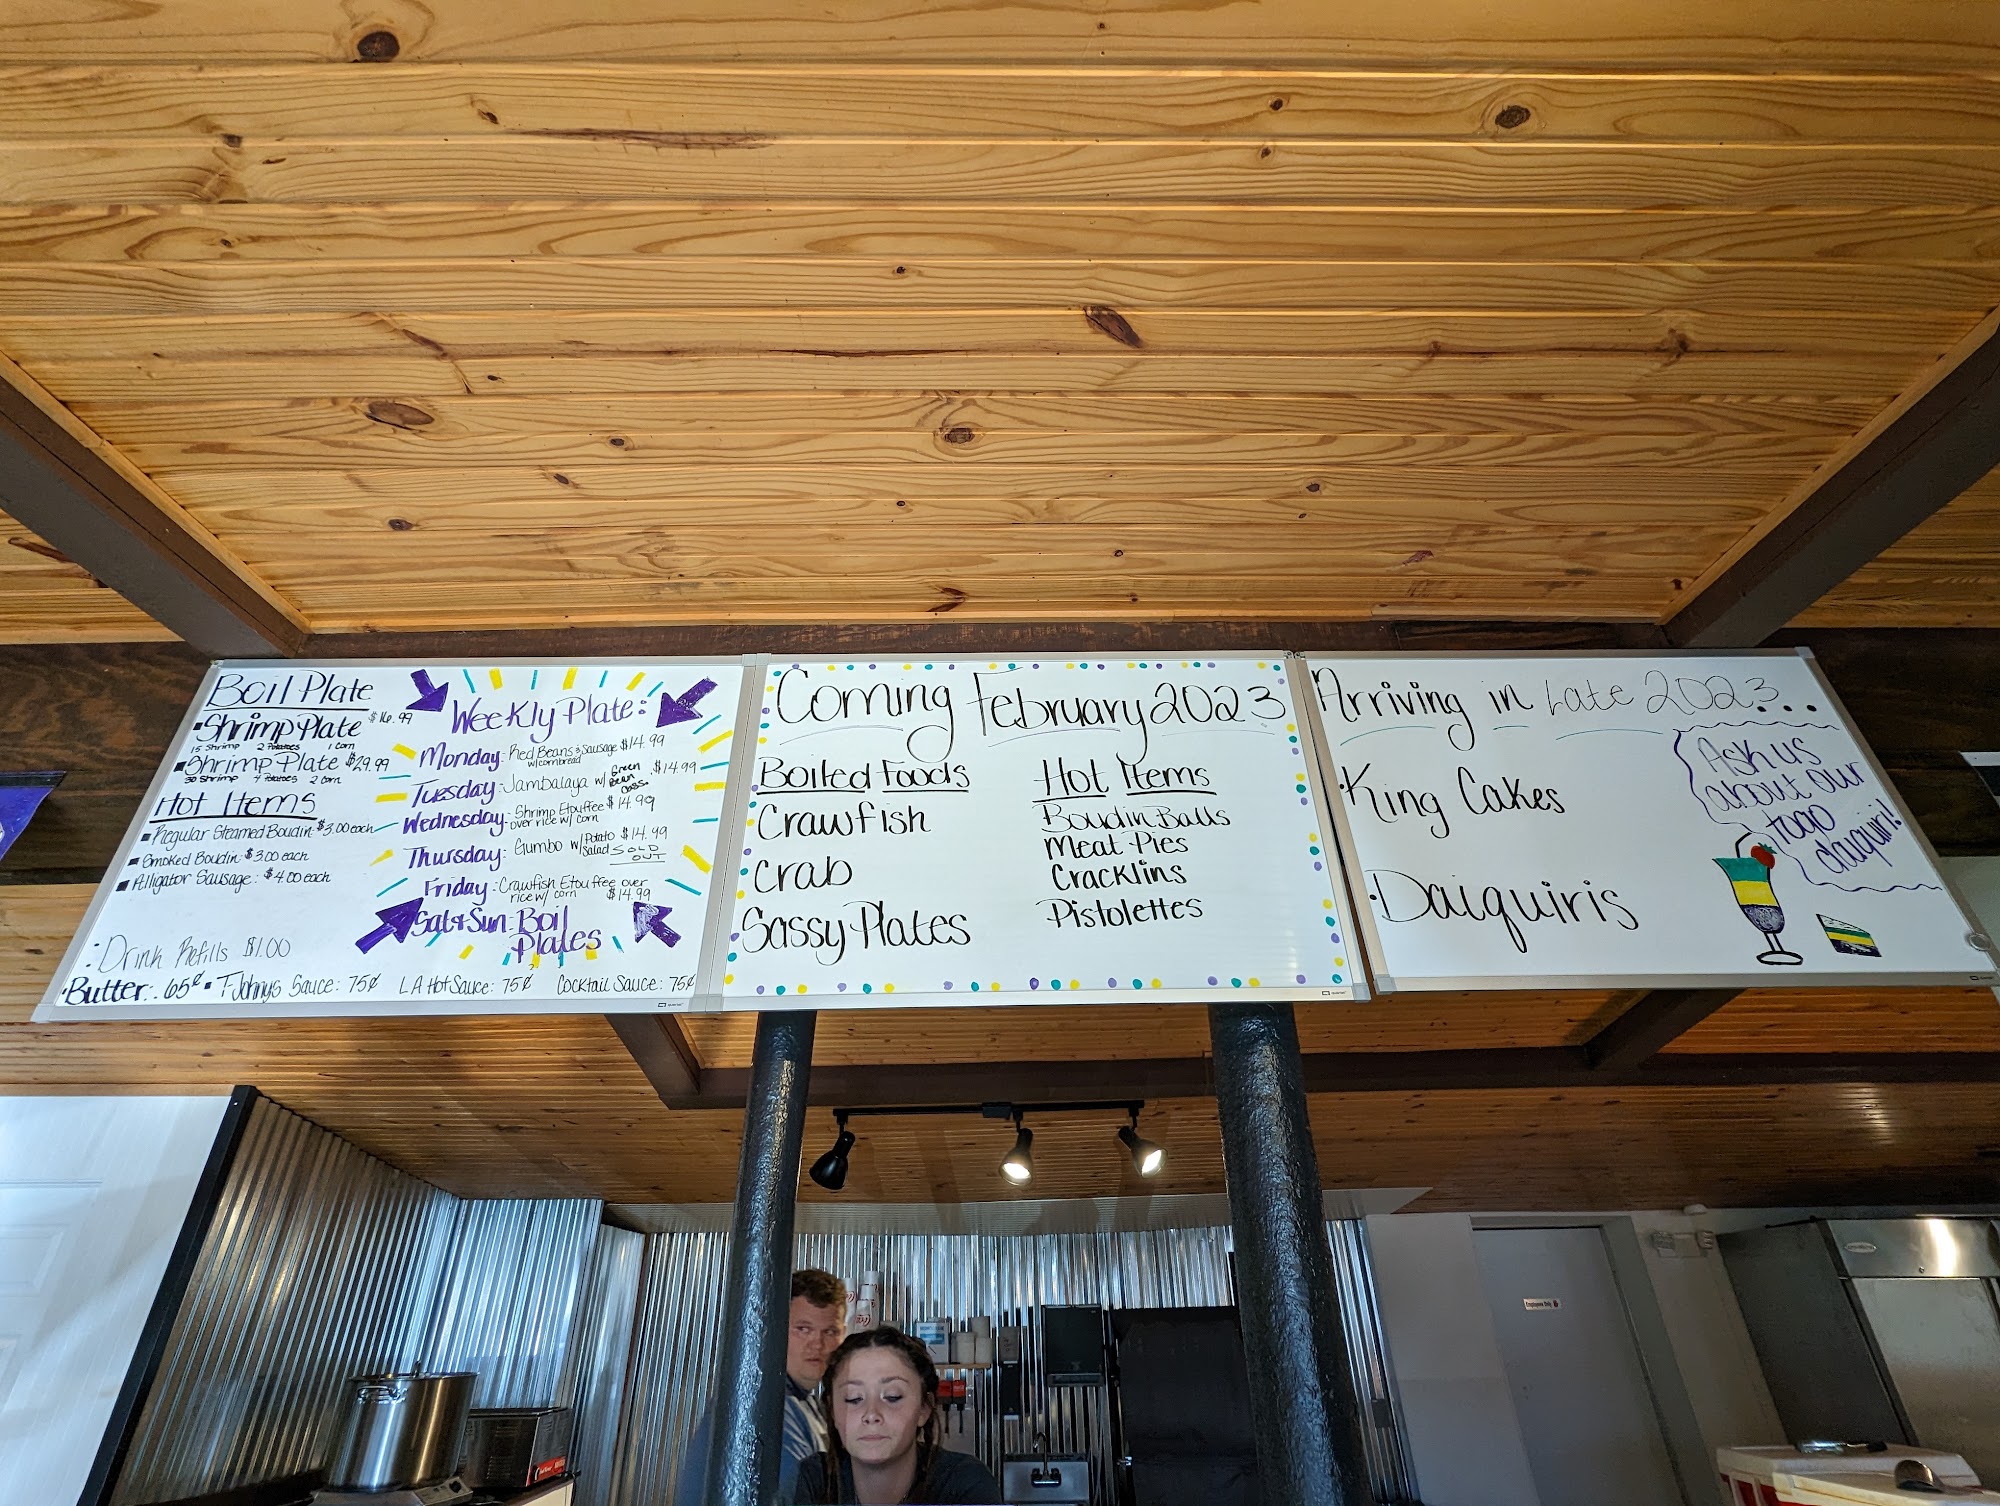 Boil Plate
▪Shrimp Plate $16.99
15 Shrimp 2 Potatoes 1 Corn
▪Shrimp Plate $29.99
30 Shrimp 4 Potatoes 2 Corn
Hot Items
▪Regular Steamed Boudin: $3.00 each
▪Smoked Boudin: $3.00 each
▪Alligator Sausage: $4.00 each
Weekly Plate:
Monday: Red Beans & Sausage $14.99
w/ cornbread
Tuesday: Jambalaya w/ Green Bean Cass. $14.99
Wednesday: Shrimp Etouffee $14.99
over rice w/ corn
Thursday: Gumbo w/ Potato Salad $14.99
SOLD OUT
Friday: Crawfish Etouffee over
rice w/ corn $14.99
Sat & Sun: Boil
Plates
Drink Refills $1.00
Butter.. 65¢ ▪ T-Johnys Sauce: 75¢ LA Hot Sauce: 75¢ Cocktail Sauce: 75¢
Coming February 2023
Boiled Foods
Crawfish
Crab
Sassy Plates
Hot Items
Boudin Balls
Meat Pies
Cracklins
Pistolettes
Arriving in Late 2023...
·King Cakes
·Daiquiris
Ask us
about our
togo
daiquiri!
Employees Only